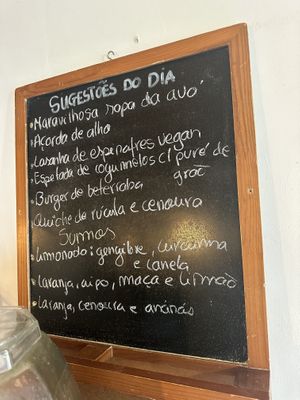 SUGESTÕES DO DIA
• Maravilhosa sopa da avó
• Açorda de alho
• Lasanha de espinafres vegan
• Espetada de cogumelos c/ puré de
grão
• Burger de beterraba
• Quiche de rúcula e cenoura
Sumos
• Limonada: gengibre, curcuma
e canela
• Laranja, aipo, maça e limão
• Laranja, cenoura e ananás